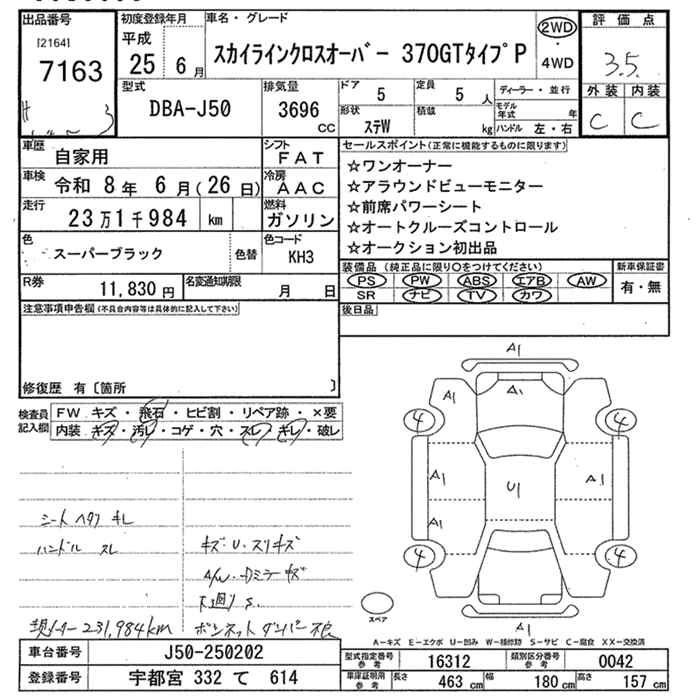 出品番号
[2164]
7163
初度登録年月
平成
25 6月
車名・グレード
スカイラインクロスオーバー 370GTタイプP
2WD
・
4WD
評価点
3.5
外装 内装
C C
型式
DBA-J50
排気量
3696
cc
ドア
5
定員
5 人
形状
ステW
積載
kg
ディーラー・並行
モデル年式 年
ハンドル 左・右
車歴
自家用
シフト
FAT
車検
令和 8年 6月(26日)
冷房
AAC
走行
23万1千984 km
燃料
ガソリン
色
スーパーブラック
色替
色コード
KH3
R券
11,830円
名変通知期限
月 日
セールスポイント(正常に機能するものに限ります)
☆ワンオーナー
☆アラウンドビューモニター
☆前席パワーシート
☆オートクルーズコントロール
☆オークション初出品
装備品(純正品に限り○をつけてください)
新車保証書
PS PW ABS エアB AW
SR ナビ TV カワ
有・無
後日品
注意事項申告欄(不具合内容等は具体的に記入して下さい)
修復歴 有〔箇所 〕
検査員
記入欄
FW キズ・飛石・ヒビ割・リペア跡・×要
内装 キズ・汚レ・コゲ・穴・スレ・キレ・破レ
シートヘタリ キレ
ハンドル スレ
キズ・U・スリキズ
A/W・Dミラーキズ
下廻り S.
現メーター231,984km ボンネットダンパー不良
A1
A1
A1
4
4
A1
U1
A1
A1
4
4
スペア
A1
A-キズ E-エクボ U-凹み W-補修跡 S-サビ C-腐食 XX-交換済
車台番号
J50-250202
型式指定番号
参考
16312
類別区分番号
参考
0042
登録番号
宇都宮 332 て 614
車庫証明用
参考
長さ 463 cm 幅 180 cm 高さ 157 cm